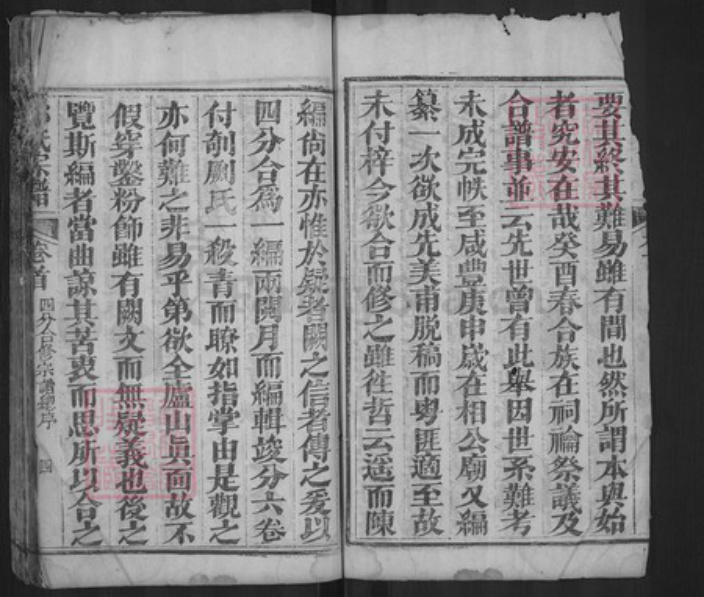 要其終其難易雖有間也然所謂本與始
者究安在哉癸酉春合族在祠禴祭議及
合譜事並云先世曾有此舉因世系難考
未成完帙至咸豐庚申歲在相公廟又編
纂一次欲成先美甫脫稿而粵匪適至故
未付梓今欲合而修之雖徃哲云遥而陳
編尙在亦惟於疑者闕之信者傳之爰以
四分合爲一編兩閱月而編輯竣分六卷
付剞劂氏一殺青而瞭如指掌由是觀之
亦何難之非易乎第欲全廬山眞面故不
假穿鑿粉飾雖有闕文而無疑義也後之
覽斯編者當曲諒其苦衷而思所以合之
氏宗譜 卷首 四分合修宗譜總序 四